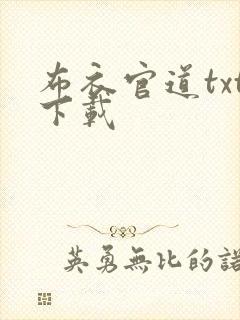 布衣官道txt
下載
英勇無比的諾